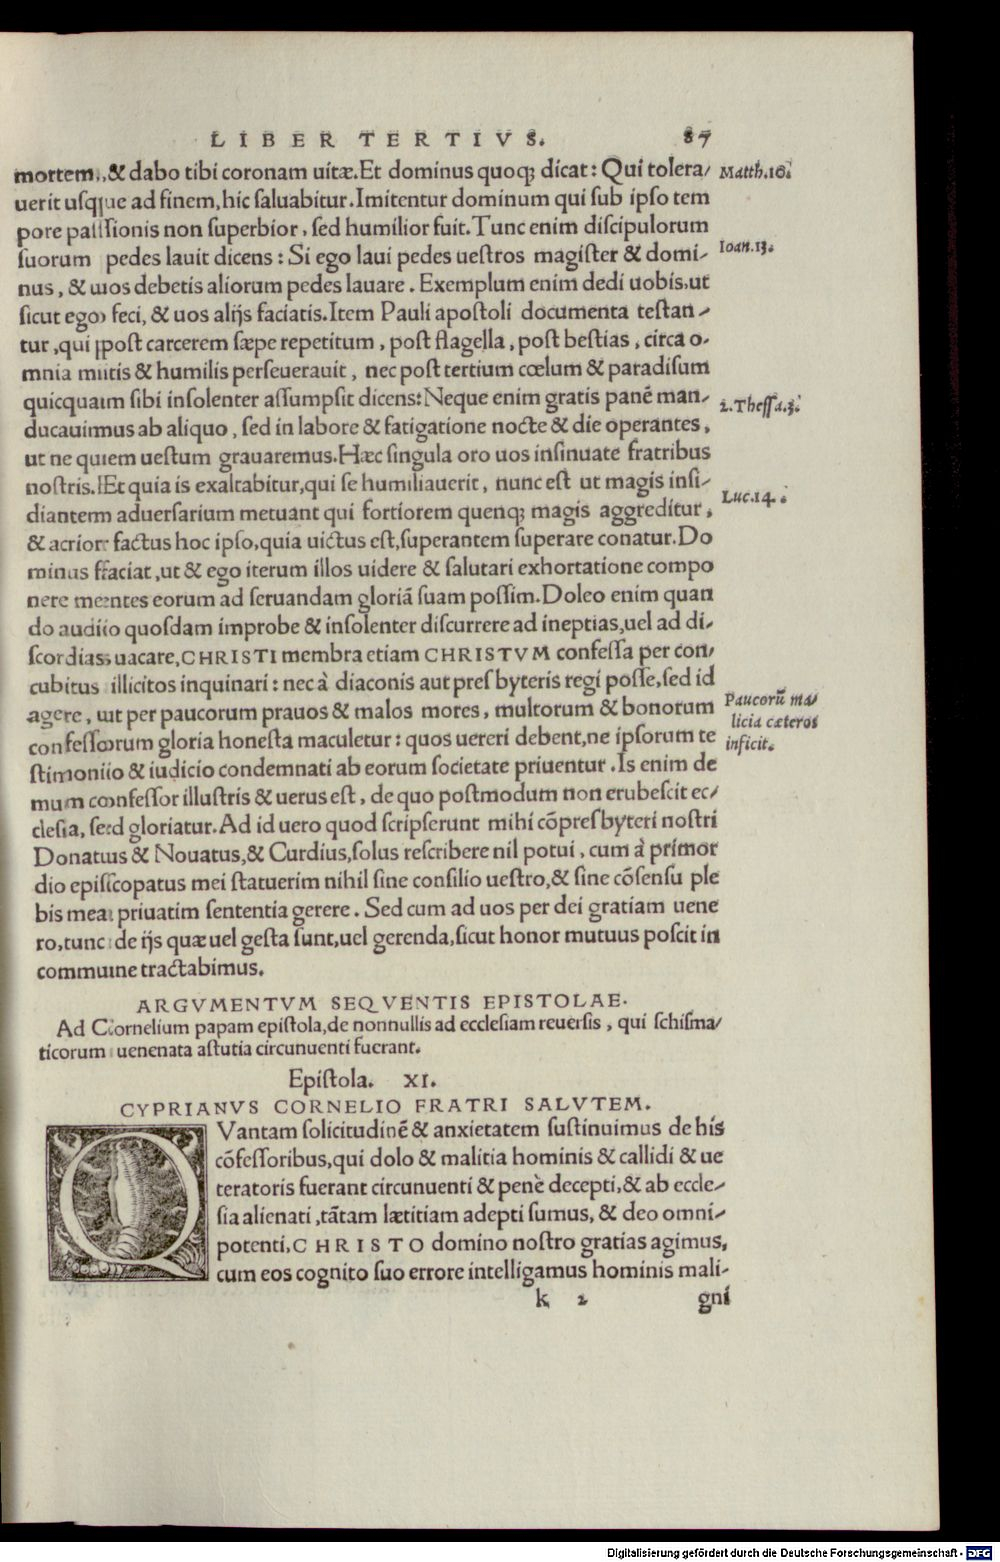 LIBER TERTIVS. 87
mortem, & dabo tibi coronam uitæ. Et dominus quoq; dicat: Qui tolera/
Matth.10.
uerit usque ad finem, hic saluabitur. Imitentur dominum qui sub ipso tem
pore passionis non superbior, sed humilior fuit. Tunc enim discipulorum
suorum pedes lauit dicens: Si ego laui pedes uestros magister & domi-
Ioan.13.
nus, & uos debetis aliorum pedes lauare. Exemplum enim dedi uobis, ut
sicut ego feci, & uos alijs faciatis. Item Pauli apostoli documenta testan-
tur, qui post carcerem sæpe repetitum, post flagella, post bestias, circa o-
mnia mitis & humilis perseuerauit, nec post tertium cœlum & paradisum
quicquam sibi insolenter assumpsit dicens: Neque enim gratis panē man-
2.Thessa.3.
ducauimus ab aliquo, sed in labore & fatigatione nocte & die operantes,
ut ne quem uestum grauaremus. Hæc singula oro uos insinuate fratribus
nostris. Et quia is exaltabitur, qui se humiliauerit, nunc est ut magis insi-
Luc.14.
diantem aduersarium metuant qui fortiorem quenq; magis aggreditur,
& acrior factus hoc ipso, quia uictus est, superantem superare conatur. Do
minus faciat, ut & ego iterum illos uidere & salutari exhortatione compo
nere mentes eorum ad seruandam gloriā suam possim. Doleo enim quan
do audio quosdam improbe & insolenter discurrere ad ineptias, uel ad di-
scordias uacare, CHRISTI membra etiam CHRISTVM confessa per con/
cubitus illicitos inquinari: nec à diaconis aut presbyteris regi posse, sed id
agere, ut per paucorum prauos & malos mores, multorum & bonorum
Paucorū ma/
licia cæteros
inficit.
confessorum gloria honesta maculetur: quos uereri debent, ne ipsorum te
stimonio & iudicio condemnati ab eorum societate priuentur. Is enim de
mum confessor illustris & uerus est, de quo postmodum non erubescit ec/
clesia, sed gloriatur. Ad id uero quod scripserunt mihi cōpresbyteri nostri
Donatus & Nouatus, & Curdius, solus rescribere nil potui, cum à primor
dio episcopatus mei statuerim nihil sine consilio uestro, & sine cōsensu ple
bis mea priuatim sententia gerere. Sed cum ad uos per dei gratiam uene
ro, tunc de ijs quæ uel gesta sunt, uel gerenda, sicut honor mutuus poscit in
commune tractabimus.
ARGVMENTVM SEQVENTIS EPISTOLAE.
Ad Cornelium papam epistola, de nonnullis ad ecclesiam reuersis, qui schisma/
ticorum uenenata astutia circunuenti fuerant.
Epistola. XI.
CYPRIANVS CORNELIO FRATRI SALVTEM.
QVantam solicitudinē & anxietatem sustinuimus de his
cōfessoribus, qui dolo & malitia hominis & callidi & ue
teratoris fuerant circunuenti & penè decepti, & ab eccle-
sia alienati, tātam lætitiam adepti sumus, & deo omni-
potenti, CHRISTO domino nostro gratias agimus,
cum eos cognito suo errore intelligamus hominis mali-
k 2 gni
Digitalisierung gefördert durch die Deutsche Forschungsgemeinschaft - DFG